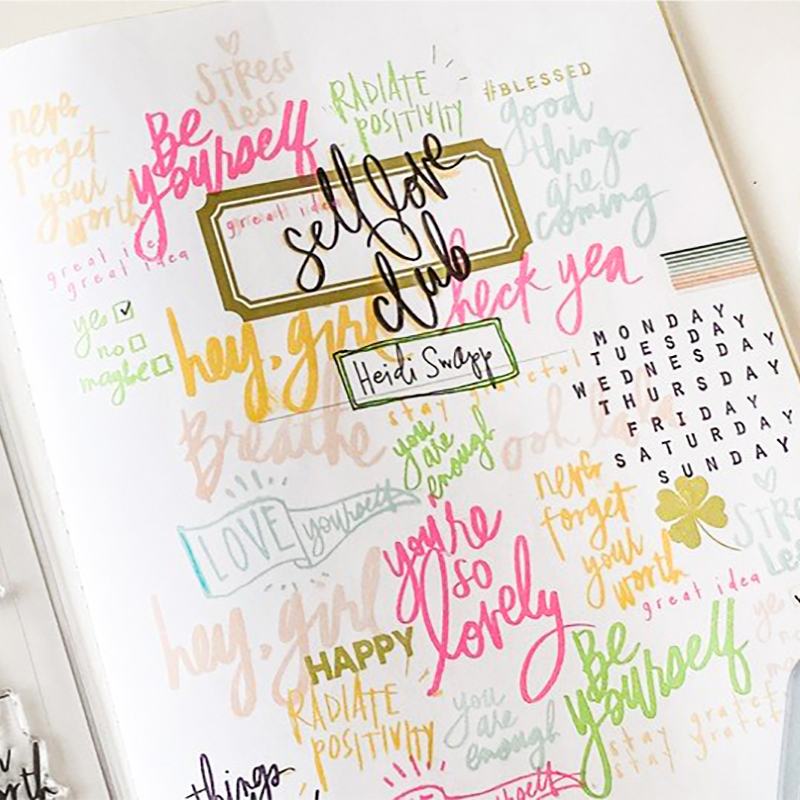 stress
less
RADIATE
POSITIVITY
#BLESSED
never
forget
your
worth
Be
yourself
good
things
are
coming
self love
club
great idea
great idea
great idea
heck yea
yes
no
maybe
hey, girl
Heidi Swapp
MONDAY
TUESDAY
WEDNESDAY
THURSDAY
FRIDAY
SATURDAY
SUNDAY
stay grateful
Breathe
you
are
enough
ooh lala
LOVE yourself
you're
so
lovely
never
forget
your
worth
stress
less
great idea
hey, girl
HAPPY
Be
yourself
RADIATE
POSITIVITY
you
are
enough
yes
no
stay grateful
stay grateful
things
yourself